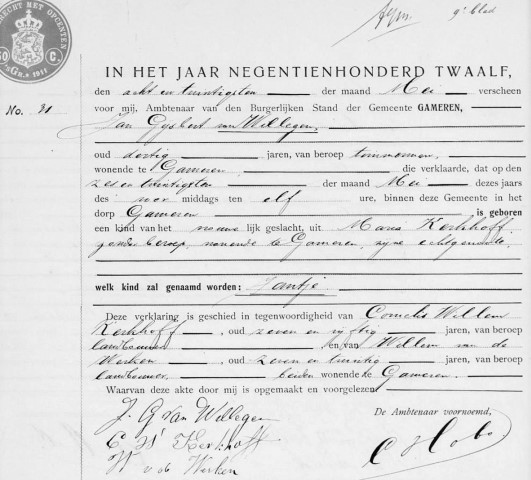 9e blad
RECHT MET OPCENTEN
50 C.
1911
IN HET JAAR NEGENTIENHONDERD TWAALF,
den acht en twintigsten der maand Mei verscheen
No. 21 voor mij, Ambtenaar van den Burgerlijken Stand der Gemeente GAMEREN,
Jan Gysbert van Willegen,
oud dertig jaren, van beroep timmerman,
wonende te Gameren, die verklaarde, dat op den
zes en twintigsten der maand Mei dezes jaars
des voor middags ten elf ure, binnen deze Gemeente in het
dorp Gameren is geboren
een kind van het vrouwe lijk geslacht, uit Maria Kerkhoff
zonder beroep, wonende te Gameren, zyne echtgenoote
welk kind zal genaamd worden: Jantje
Deze verklaring is geschied in tegenwoordigheid van Cornelis Willem
Kerkhoff, oud zeven en vyftig jaren, van beroep
landbouwer en van Willem van de
Werken oud zeven en twintig jaren, van beroep
landbouwer, beiden wonende te Gameren.
Waarvan deze akte door mij is opgemaakt en voorgelezen
J. G van Willegen
De Ambtenaar voornoemd,
C W Kerkhoff
W v d Werken